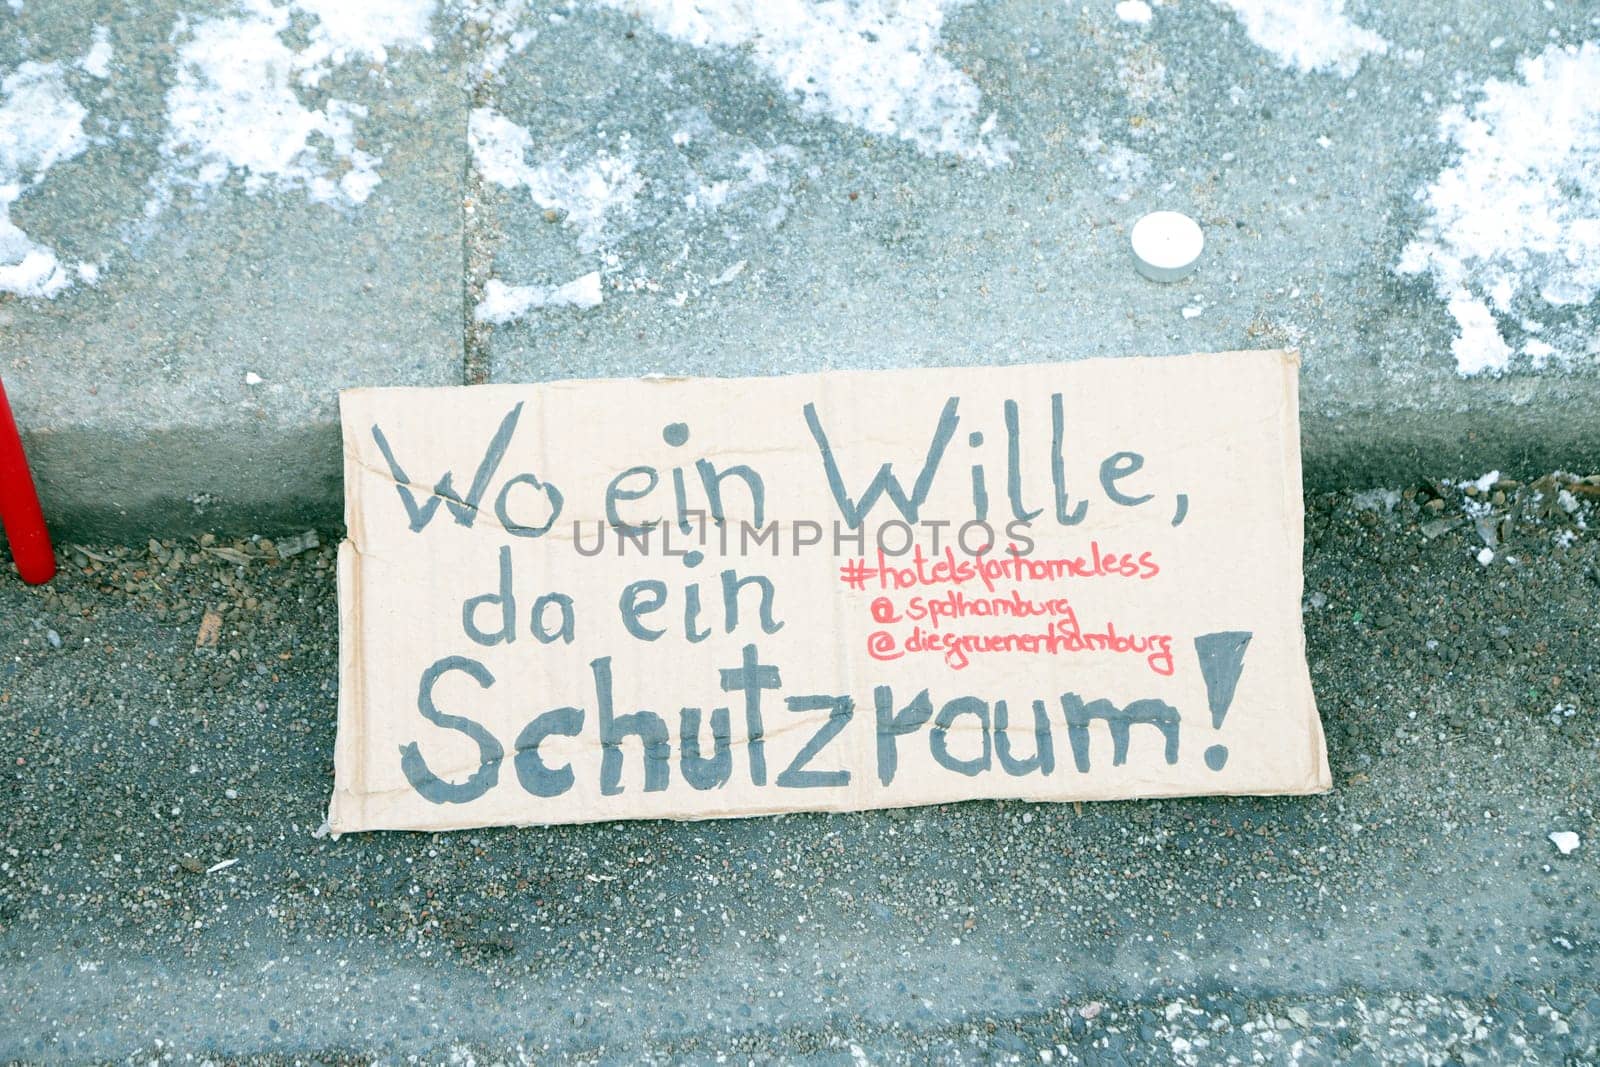 Wo ein Wille,
da ein
Schutzraum!
#hotelsforhomeless
@spdhamburg
@diegruenenhamburg
UNLIMPHOTOS